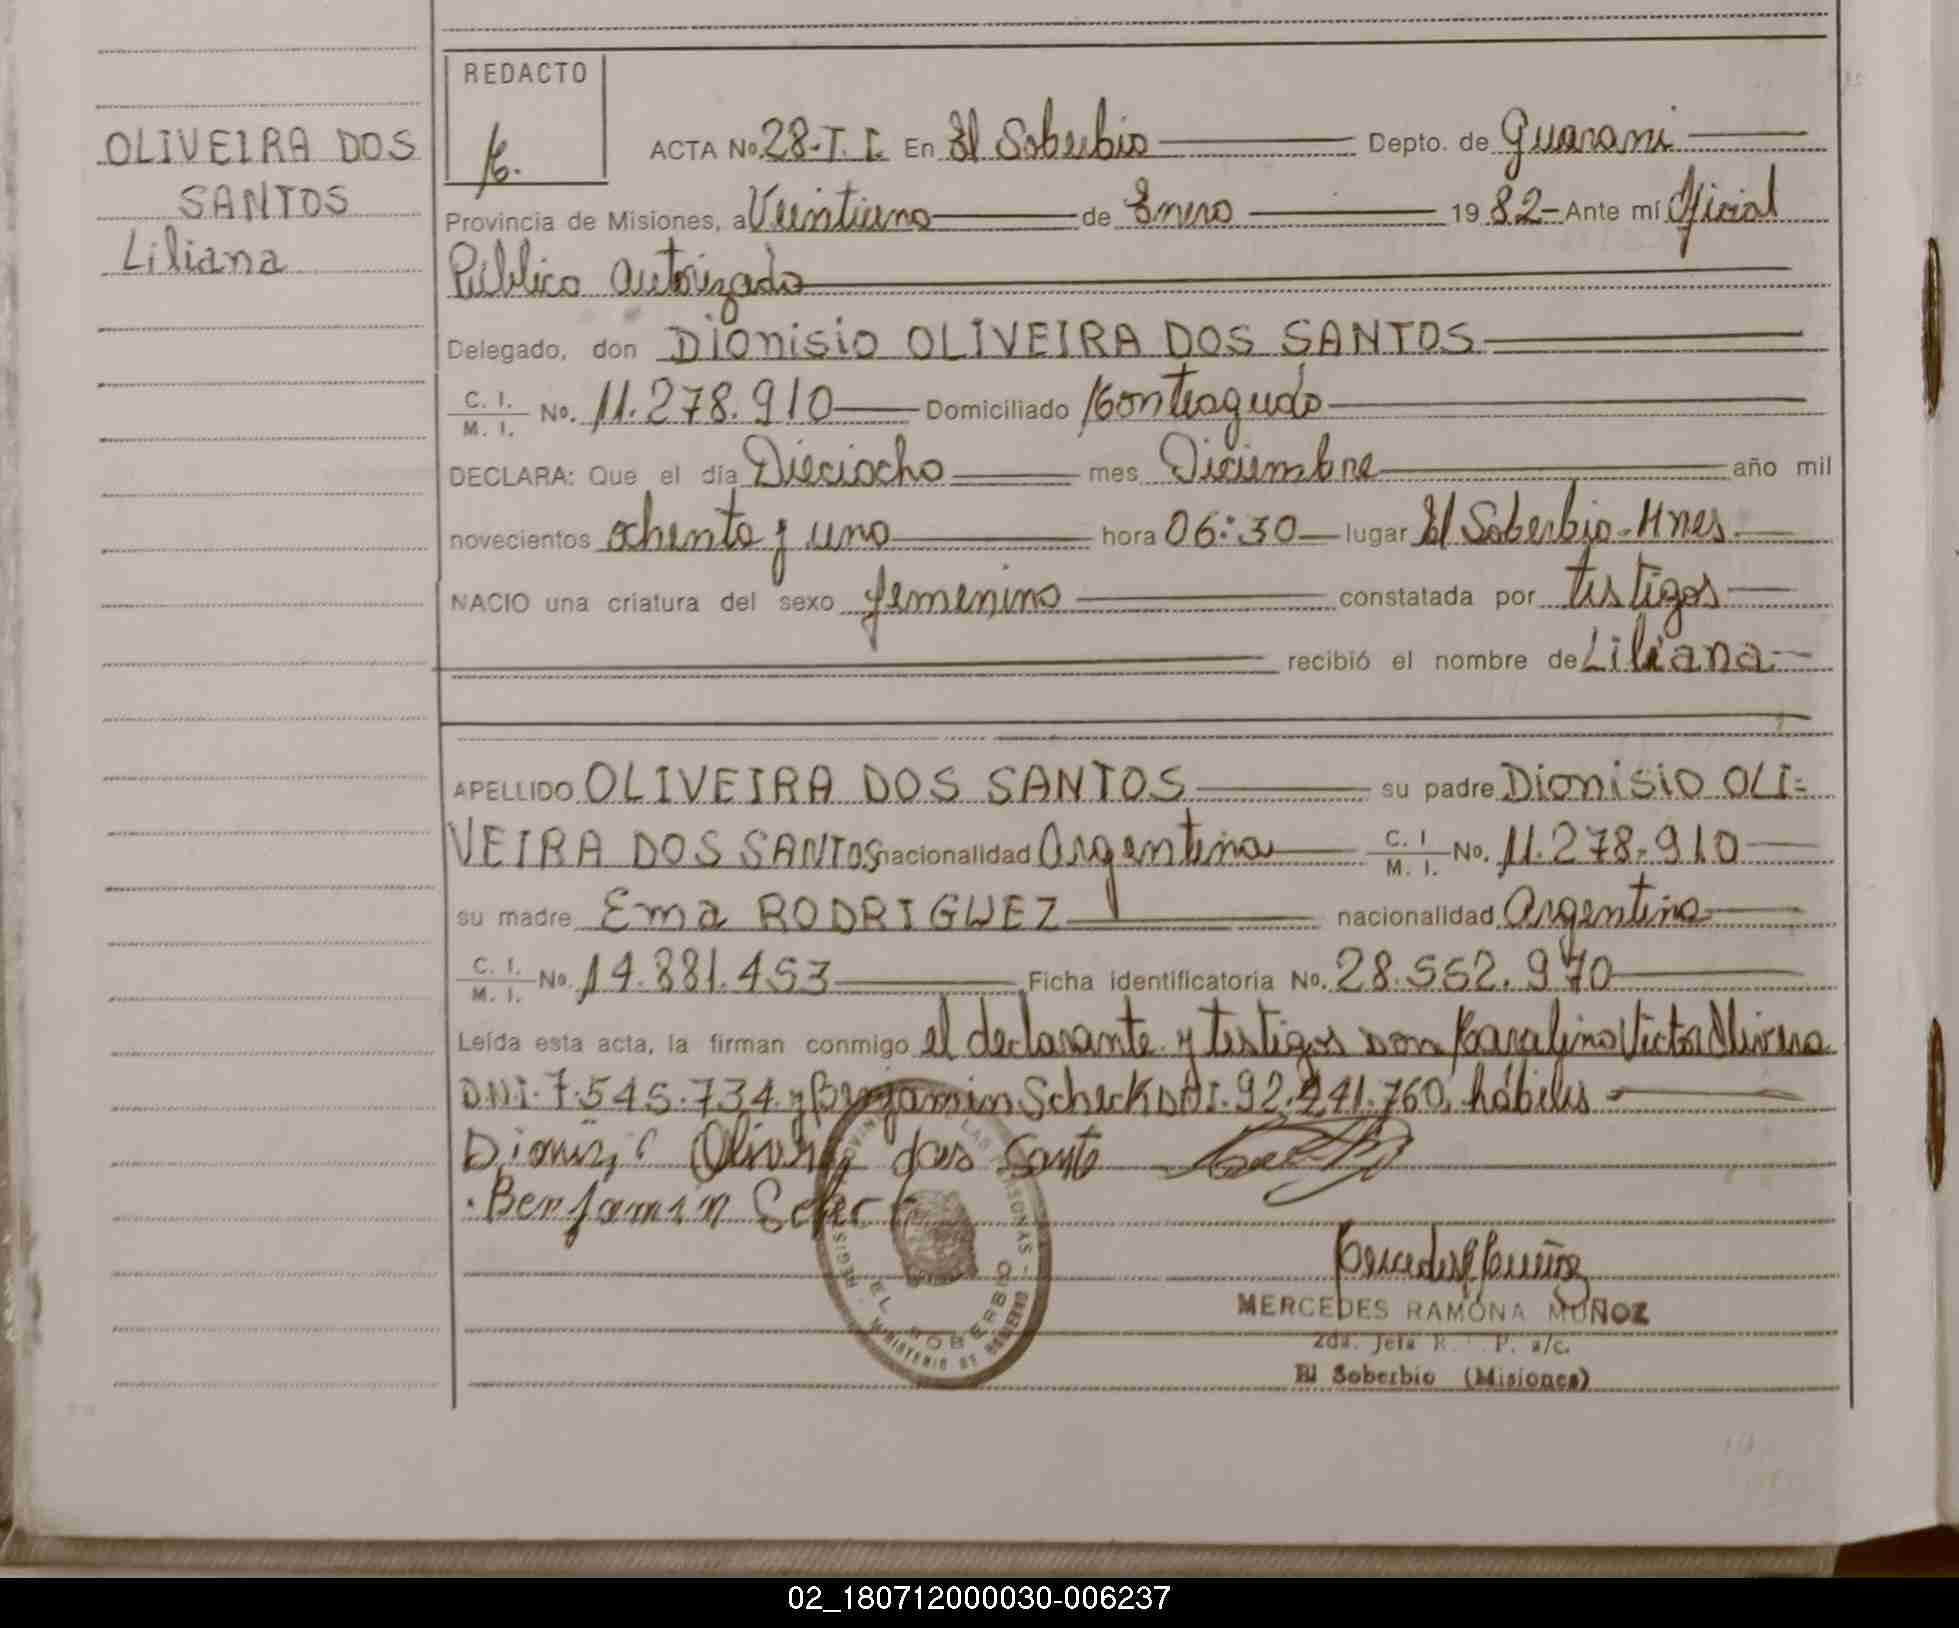 OLIVEIRA DOS
SANTOS
Liliana
REDACTO
ACTA No. 28-T.I. En El Soberbio Depto. de Guarani
Provincia de Misiones, a Veintiuno de Enero 1982- Ante mí Oficial
Público autorizado
Delegado, don Dionisio OLIVEIRA DOS SANTOS
C. I. M. I. No. 11.278.910 Domiciliado Monteagudo
DECLARA: Que el día Dieciocho mes Diciembre año mil
novecientos ochenta y uno hora 06:30 lugar El Soberbio-Mnes
NACIO una criatura del sexo femenino constatada por testigos
recibió el nombre de Liliana
APELLIDO OLIVEIRA DOS SANTOS su padre Dionisio OLI=
VEIRA DOS SANTOS nacionalidad Argentina C. I. M. I. No. 11.278.910
su madre Ema RODRIGUEZ nacionalidad Argentina
C. I. M. I. No. 14.881.453 Ficha identificatoria No. 28.552.970
Leída esta acta, la firman conmigo el declarante y testigos don Marcelino Victor Olivera
D.N.I. 7.545.734 y Benjamin Scheck DNI. 92.241.760, hábiles
Benjamin
EL SOBERBIO
MINISTERIO DE GOBIERNO
MERCEDES RAMONA MUÑOZ
2da. Jefa R. P. a/c.
El Soberbio (Misiones)
02_180712000030-006237